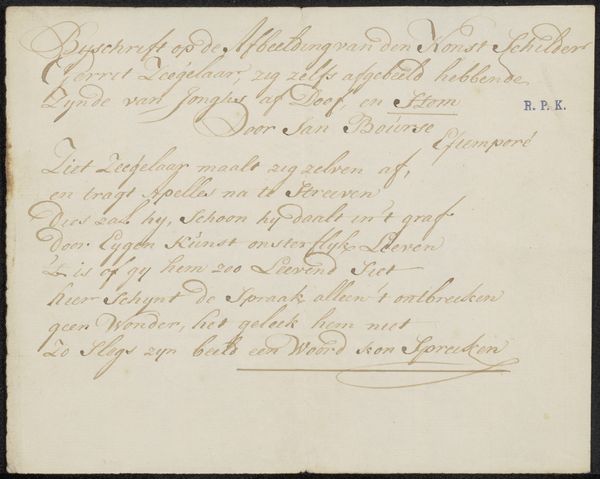 Bijschrift op de Afbeelding van den Konst Schilder
Gerrit Zeegelaar, zig zelfs afgebeeld hebbende
Zynde van Jonghs af Doof, en Stom
R. P. K.
Door Jan Boúrse
Extemporé
Ziet Zeégelaar maalt zig zelven af,
en tragt Apelles na te Streeven
Dies zal hy, Schoon hy daalt in't graf
door Eygen Kúnst onsterflyk Leeven
't is of gy hem zoo Leevend Ziet
hier Schynt de Spraak alleen 't ontbreeken
geen Wonder, het geleek hem niet
Zo Slegs zyn beeld een Woord kon Spreeken